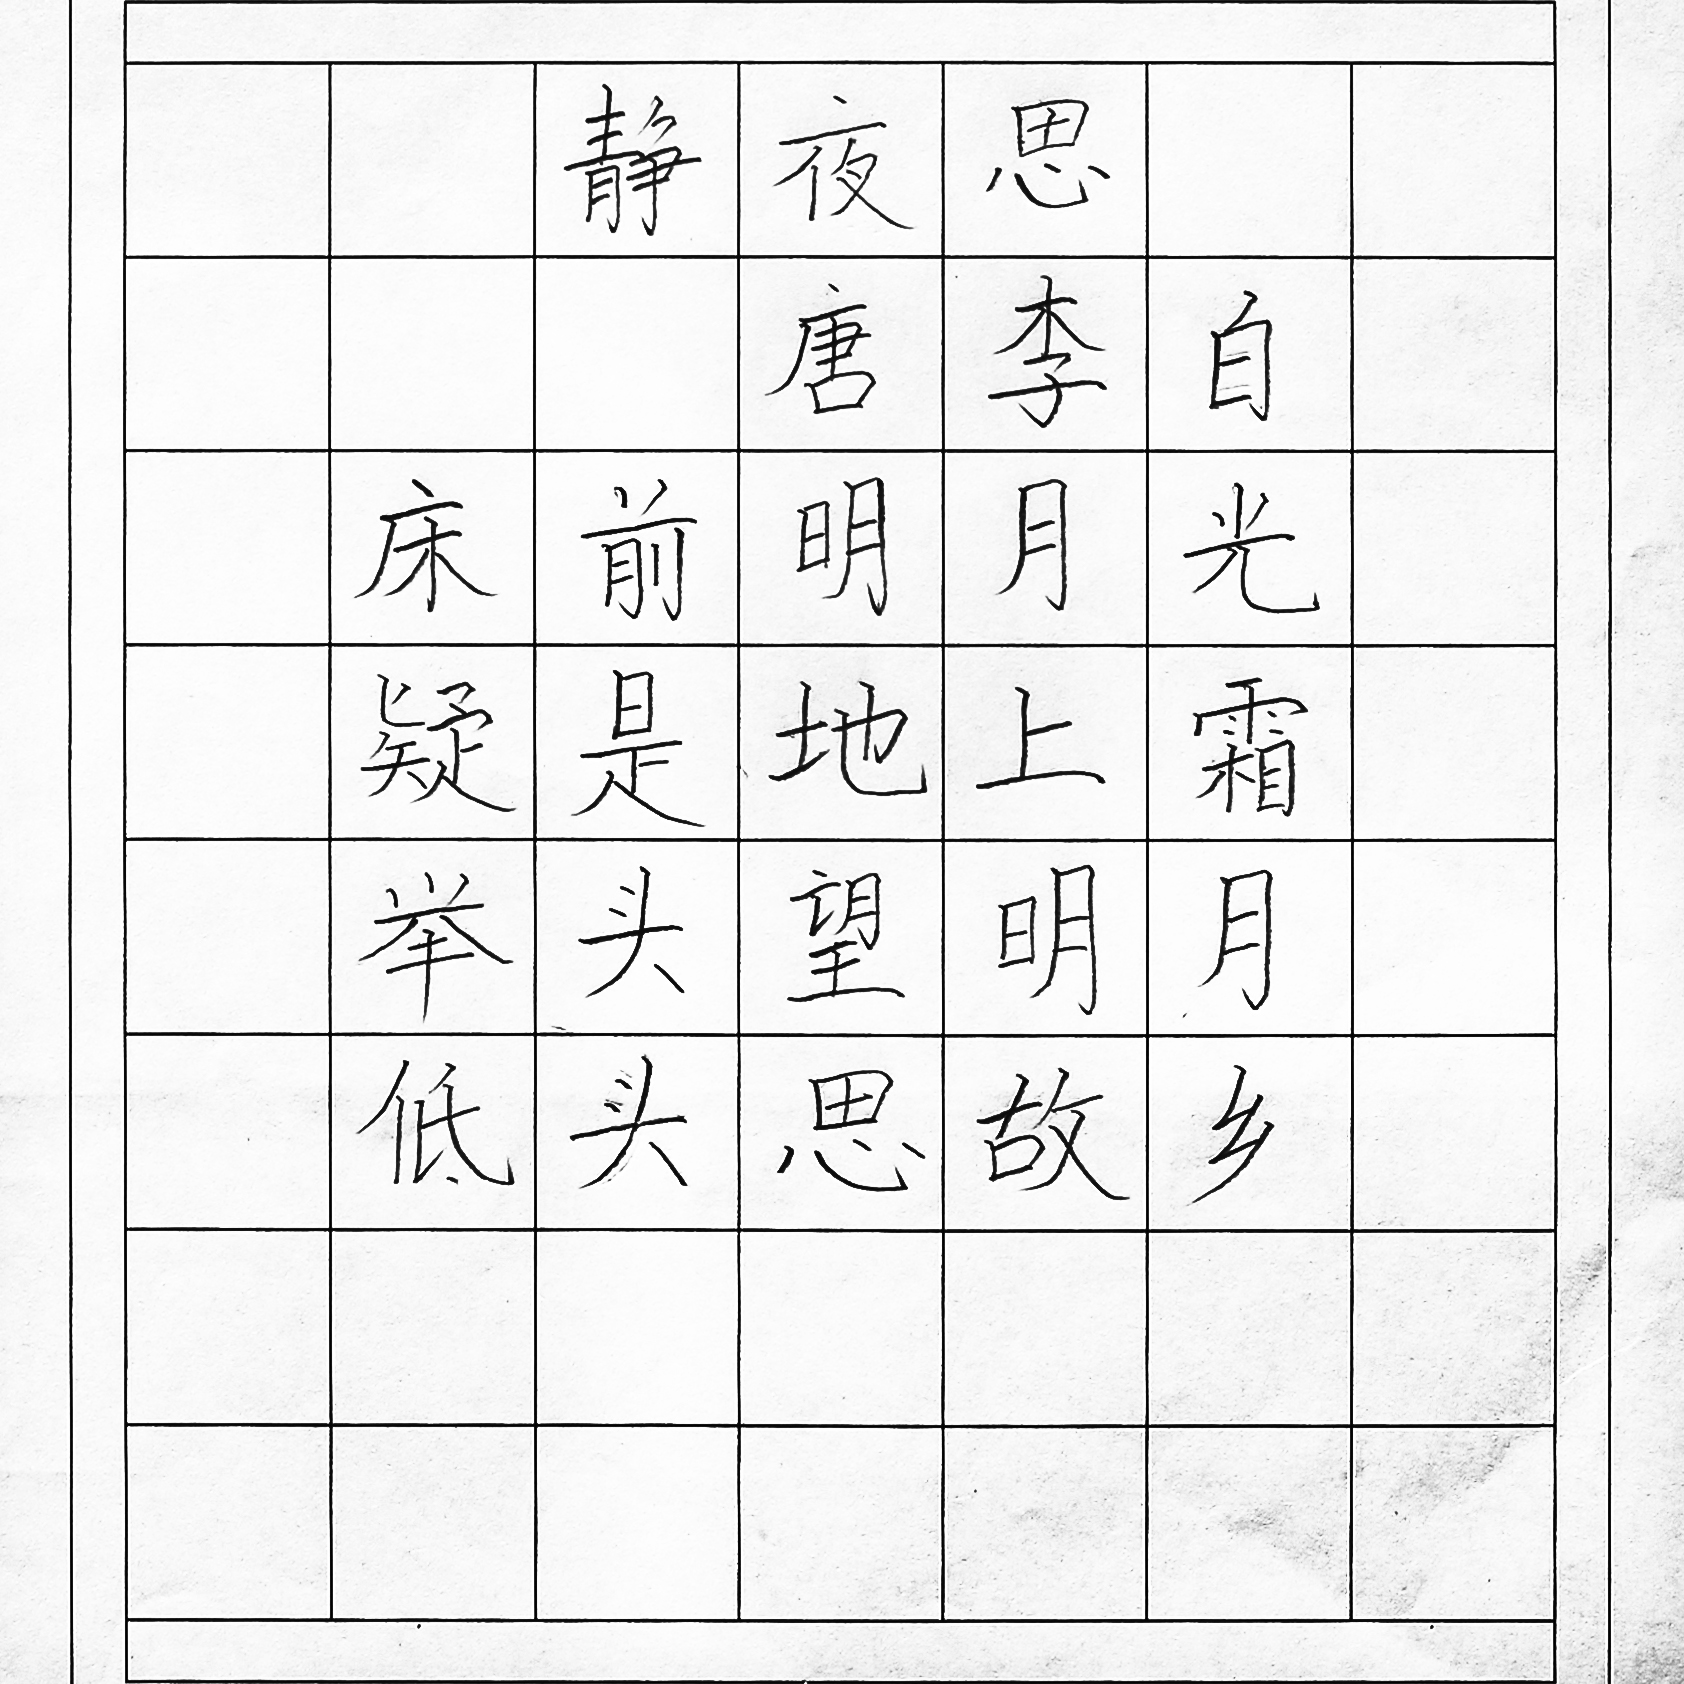 静夜思
唐李自
床前明月光
疑是地上霜
举头望明月
低头思故乡